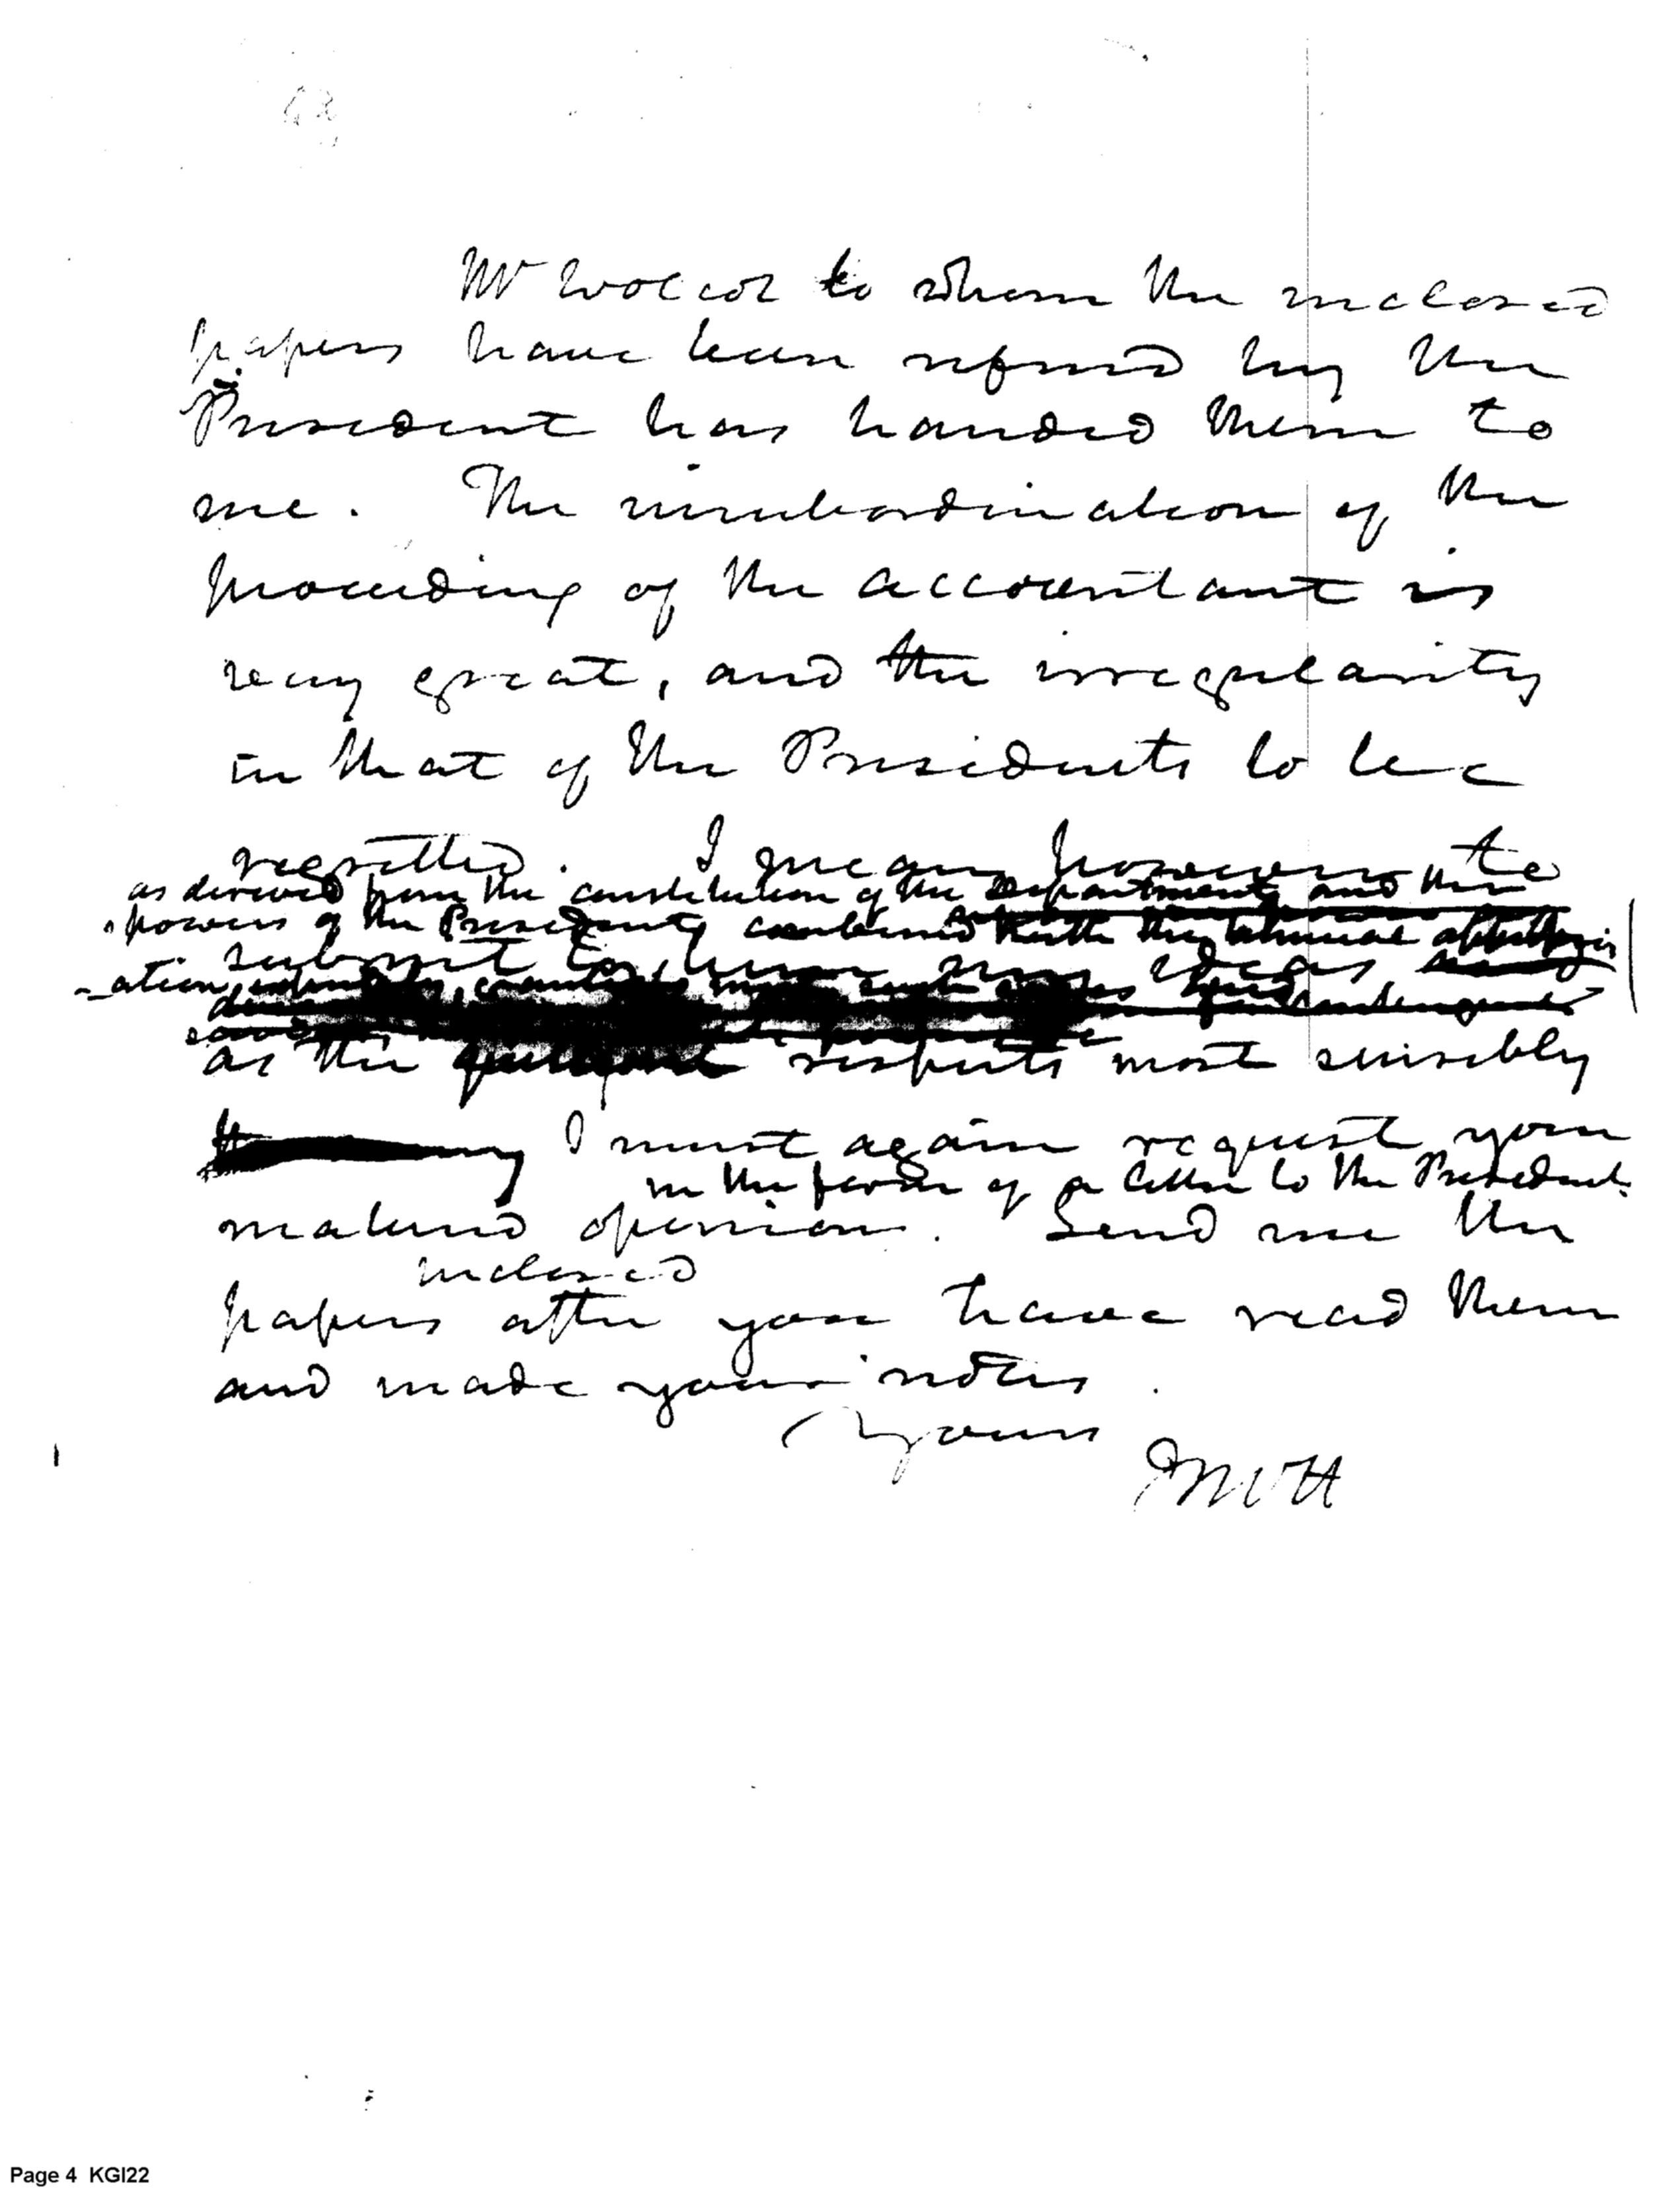 Mr Wolcot to whom the inclosed
papers have been referred by the
President has handed them to
me. The insubordination of the
proceeding of the accountant is
very great, and the irregularity
in that of the Presidents to be
regretted. I mean however to
as derived from the constitution of the department and the
powers of the President, combined with the
submit to him my ideas
-ation,
as the respects most sensibly
I must again request your
in the form of a letter to the President.
matured opinion. Send me the
inclosed
papers after you have read them
and made your notes.
Yours
JMcH
Page 4 KGI22